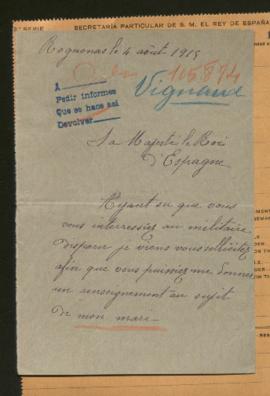 SERIE SECRETARÍA PARTICULAR DE S. M. EL REY DE ESPAÑA
Rognonas le 4 août 1915
105874
A
Pedir informes
Que se hace así
Devolver
Vignaux
Sa Majesté le Roi
d'Espagne
Ayant su que vous
vous interressiez au militaire
disparu je viens vous solliciter
afin que vous puissiez me donner
un renseignement au sujet
de mon mari